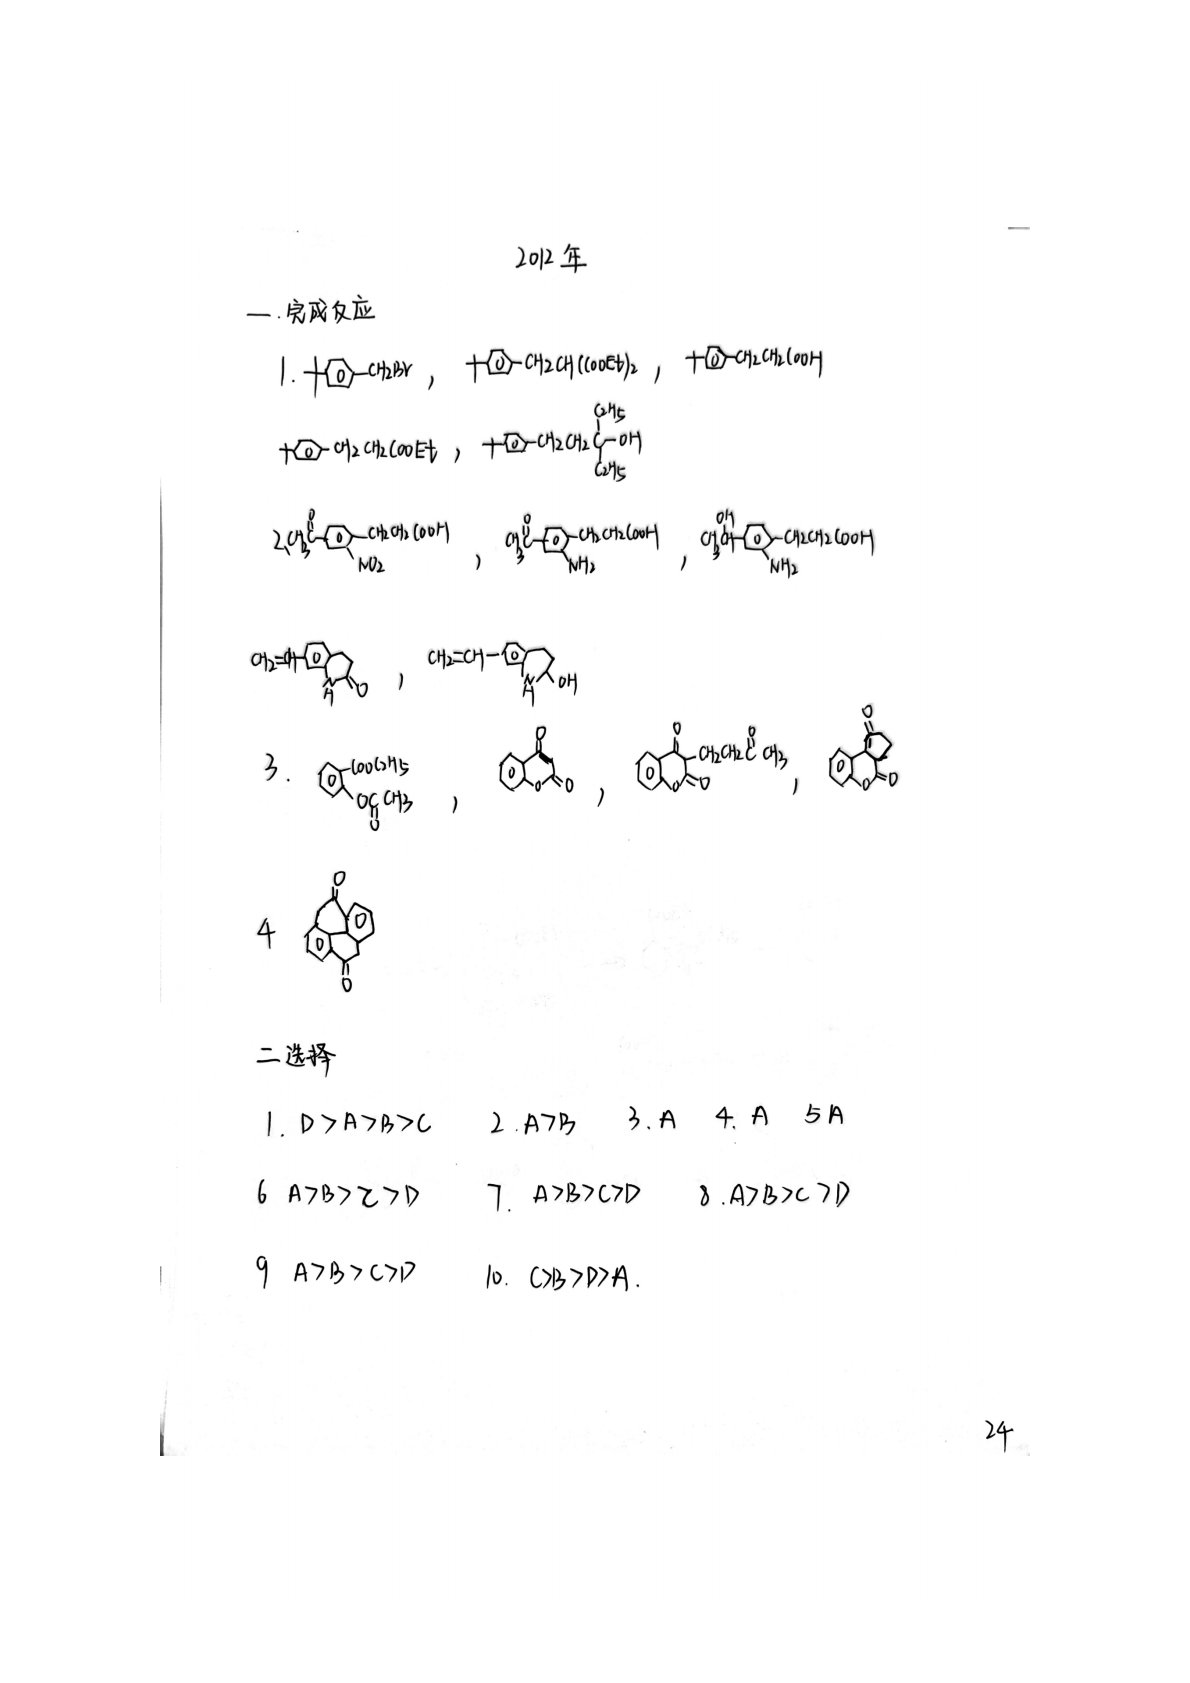 2012年
一.完成反应
1. CH2Br , CH2CH(COOEt)2 , CH2CH2COOH
CH2CH2COOEt , CH2CH2C(C2H5)(C2H5)OH
2. CH3C(=O) CH2CH2COOH NO2 , CH3C(=O) CH2CH2COOH NH2 , CH3CH(OH) CH2CH2COOH NH2
CH2=CH N H O , CH2=CH N H OH
3. COOC2H5 OCCH3 O , O O O , O CH2CH2CCH3 O O O , O O O
4 O O
二 选择
1. D>A>B>C 2. A>B 3. A 4. A 5 A
6 A>B>C>D 7. A>B>C>D 8. A>B>C>D
9 A>B>C>D 10. C>B>D>A.
24